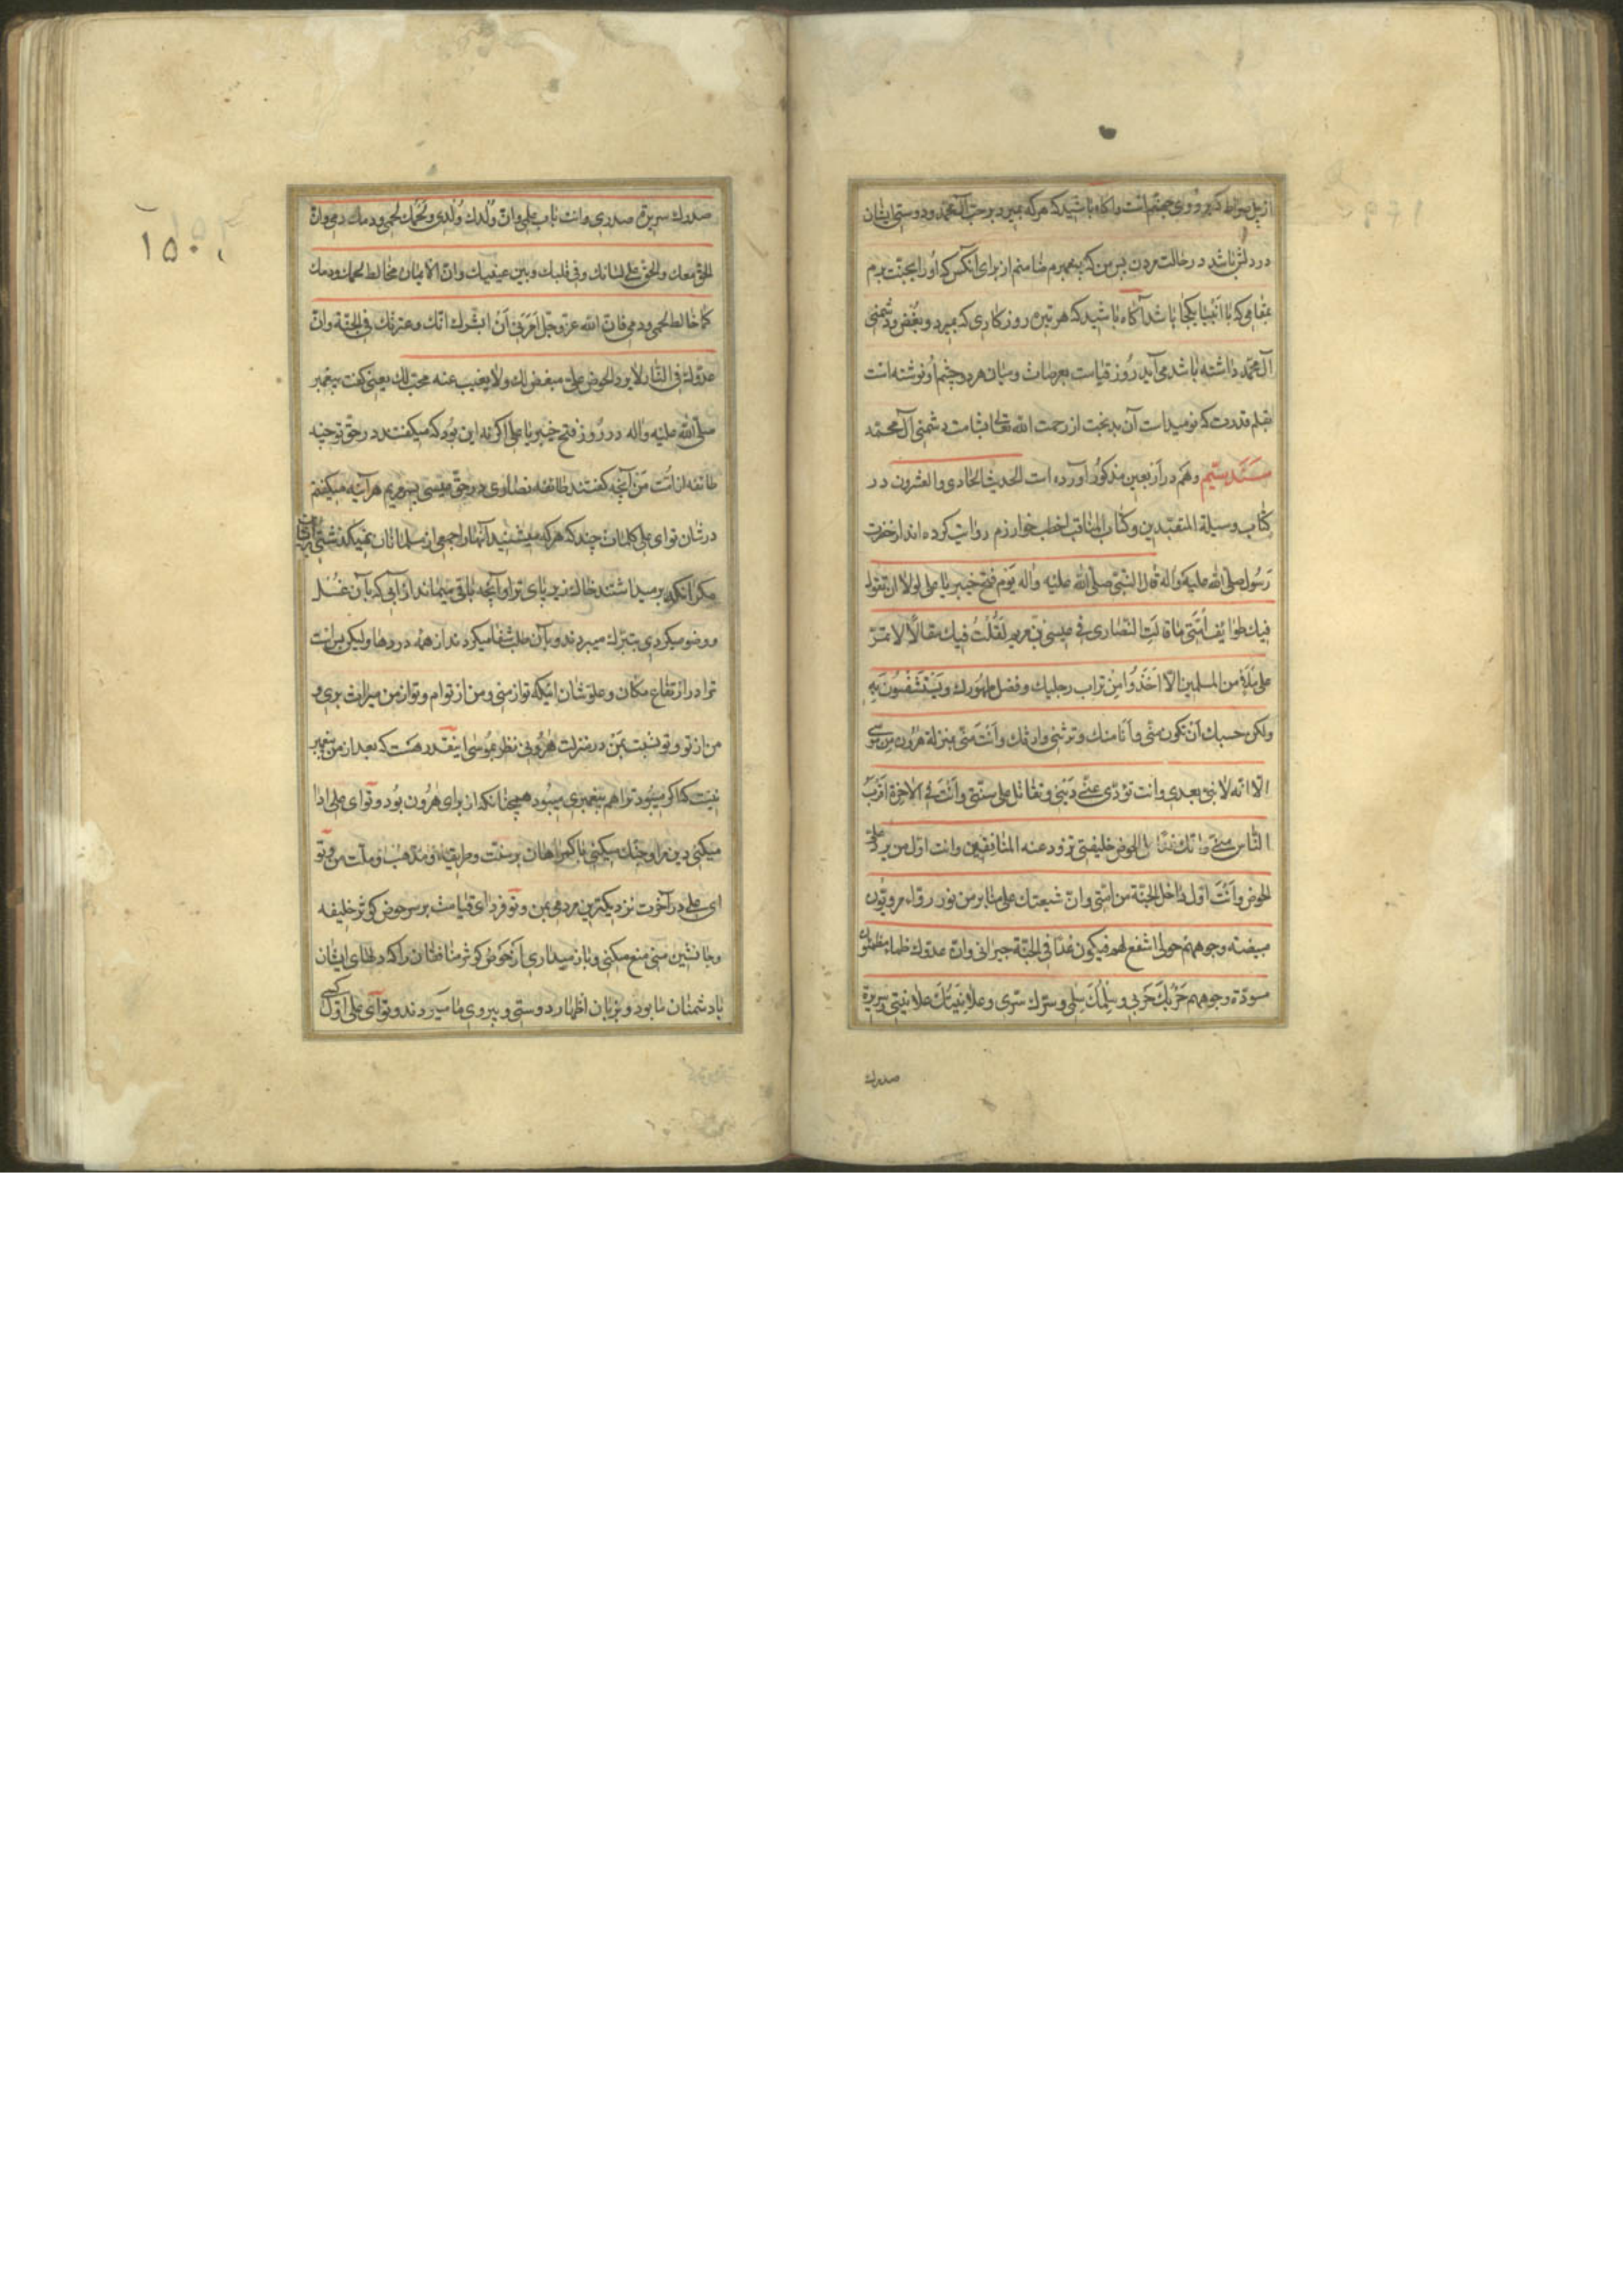 از پل صراط که بر روی جهنم است واکاه باشید که هر که بمیرد بر حب آل محمد ودوستی ایشان
در دلش باشد در حالت مردن پس من که پیغمبرم ضامنم از برای آنکس که اورا بجنت برم
بمقامی که با انبیا یکجا باشد آکاه باشید که هر تیره روزکاری که بمیرد وبغض ودشمنی
آل محمد داشته باشد می آید روز قیامت بعرصات ومیان هر دو چشم او نوشته است
بقلم قدرت که نومید است آن بدبخت از رحمت الله تعالی بشامت دشمنی آل محمد
سند بیستم وهم در اربعین مذکور آورده است الحدیث الحادی والعشرون در
کتاب وسیلة المتعبدین وکتاب المناقب اخطب خوارزم روایت کرده اند از حضرت
رسول صلی الله علیه واله قال النبی صلی الله علیه واله یوم فتح خیبر یا علی لولا ان تقول
فیك طوایف امتی ما قالت النصاری فی عیسی بن مریم لقلت فیك مقالا لا تمر
علی ملاء من المسلمین الا اخذوا من تراب رجلیك وفضل طهورك ویستشفون به
ولکن حسبك ان تکون منی وانا منك وترثنی وارثك وانت منی بمنزلة هرون من موسی
الا انه لا نبی بعدی وانت تؤدی عنی دینی وتقاتل علی سنتی وانت فی الاخرة اقرب
الناس منی وانك غدا علی الحوض خلیفتی تزود عنه المنافقین وانت اول من یرد علی
الحوض وانت اول داخل الجنة من امتی وان شیعتك علی منابر من نور رواء مرویون
مبیضة وجوههم حولی اشفع لهم فیکون غدا فی الجنة جیرانی وان عدوك ظماء مظمئون
مسودة وجوههم حربك حربی وسلمك سلمی وسرك سری وعلانیتك علانیتی وسریرة
صدرك
۱۵۰
صدرك سریرة صدری وانت باب علمی وان ولدك ولدی ولحمك لحمی ودمك دمی وان
الحق معك والحق علی لسانك وفی قلبك وبین عینیك وان الایمان مخالط لحمك ودمك
کما خالط لحمی ودمی فان الله عز وجل امرنی ان ابشرك انك وعترتك فی الجنة وان
عدوك فی النار لا یرد الحوض علی مبغض لك ولا یغیب عنه محب لك یعنی کفت پیغمبر
صلی الله علیه واله در روز فتح خیبر یا علی اکر نه این بود که میکفتند در حق تو جبه
طائفه از امت من آنچه کفتند طائفه نصاری در حق عیسی بن مریم هر آینه میکفتم
در شان تو ای علی کلمات چند که هر که میشنید آنها را جمعی از مسلمانان نمیکذشتی
مکر آنکه برمیداشتند خاك زیر پای ترا وآنچه باقی میماند از آبی که بآن غسل
ووضو میکردی بتبرك میبردند وبآن طلب شفا میکردند از همه دردها ولیکن بس است
ترا در ارتفاع مکان وعلو شان اینکه تو از منی ومن از توام وتو از من میراث بری و
من از تو وتو نسبت بمن در منزلت هرونی نظر بموسی اینقدر هست که بعد از من پیغمبر
نیست که اکر میبود ترا هم پیغمبری میبود همچنانکه از برای هرون بود وتو ای علی ادا
میکنی دین مرا وجنك میکنی با کمراهان بر سنت وطریقه ومذهب وملت من وتو
ای علی در آخرت نزدیکترین مردمی بمن وتو فردای قیامت بر سر حوض کوثر خلیفه
وجانشین منی منع میکنی وبازمیداری از حوض کوثر منافقان را که دلهای ایشان
با دشمنان ما بود وبزبان اظهار دوستی وپیروی ما میکردند وتو ای علی اول کسی